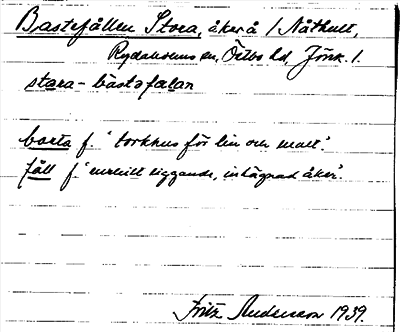 Bastefällen Stora, åker å 1 Nåthult,
Rydaholms sn, Östbo hd, Jönk. l.
stora - bàstəfælan
basta f. 'torkhus för lin och malt'.
fäll f. 'enskilt liggande, inhägnad åker'.
Fritz Andersson 1939.